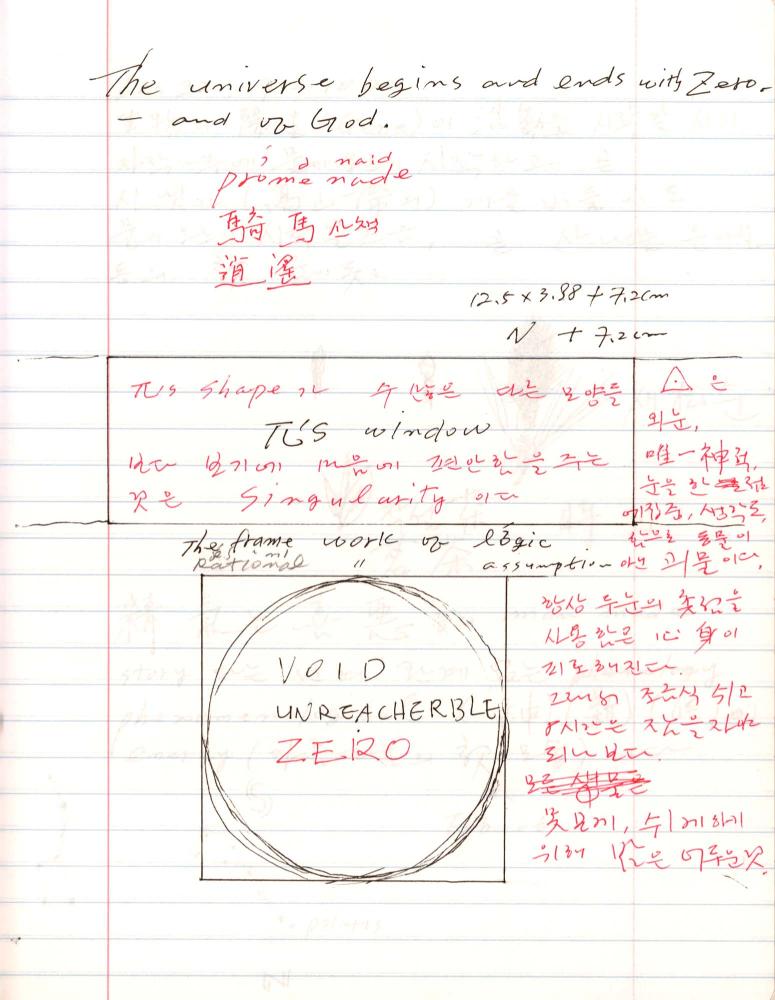 The universe begins and ends with Zero.
— and of God.
promenade
騎馬 산책
逍遙
12.5 x 3.98 + 7.2cm
N + 7.2cm
π's shape가 수많은 다른 모양들
π's window
보다 보기에 마음에 편안함을 주는
것은 Singularity 이다
△ 은
외눈,
唯一神적,
눈을 한 점
에 집중, 생각도,
함으로 동물이
아닌 괴물이다.
The frame work of logic
Rational " assumption
항상 두눈의 촛점을
사용 함은 心身이
피로해진다.
그래서 조금식 쉬고
8시간은 잠을 자게
되나 보다.
못보게, 쉬게하게
위해 밤은 어두운것.
VOID
UNREACHERBLE
ZERO